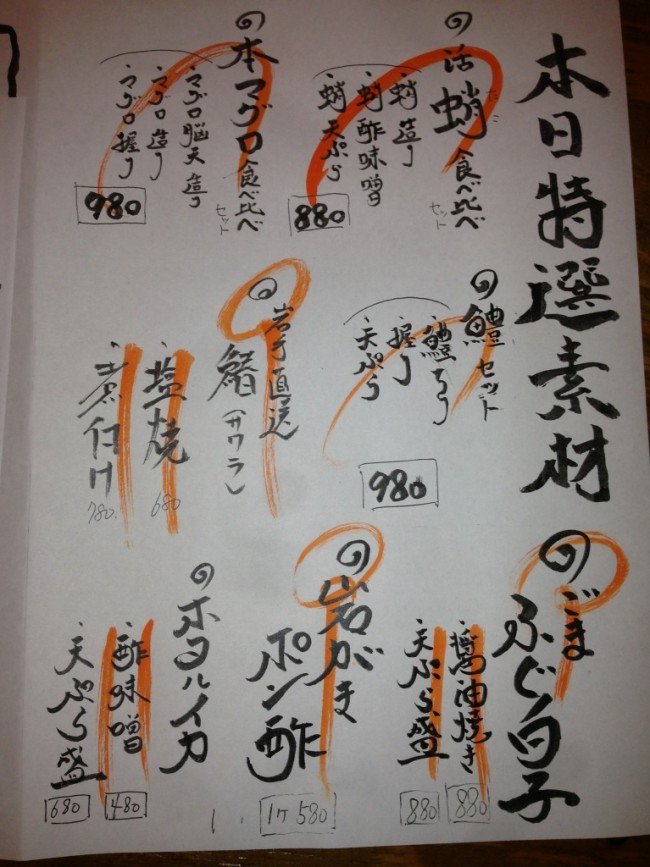 本日特選素材
活蛸食べ比べ
たこ
セット
・蛸造り
・蛸酢味噌
・蛸天ぷら
880
本マグロ食べ比べ
セット
・マグロ脳天造り
・マグロ造り
・マグロ握り
980
鱧セット
・鱧ちり
・握り
・天ぷら
980
岩手直送
鰆(サワラ)
・塩焼
680
・煮付け
780
ごま
ふぐ白子
・醤油焼き
880
・天ぷら盛
880
岩がき
ポン酢
1ケ580
ホタルイカ
・酢味噌
480
・天ぷら盛
680